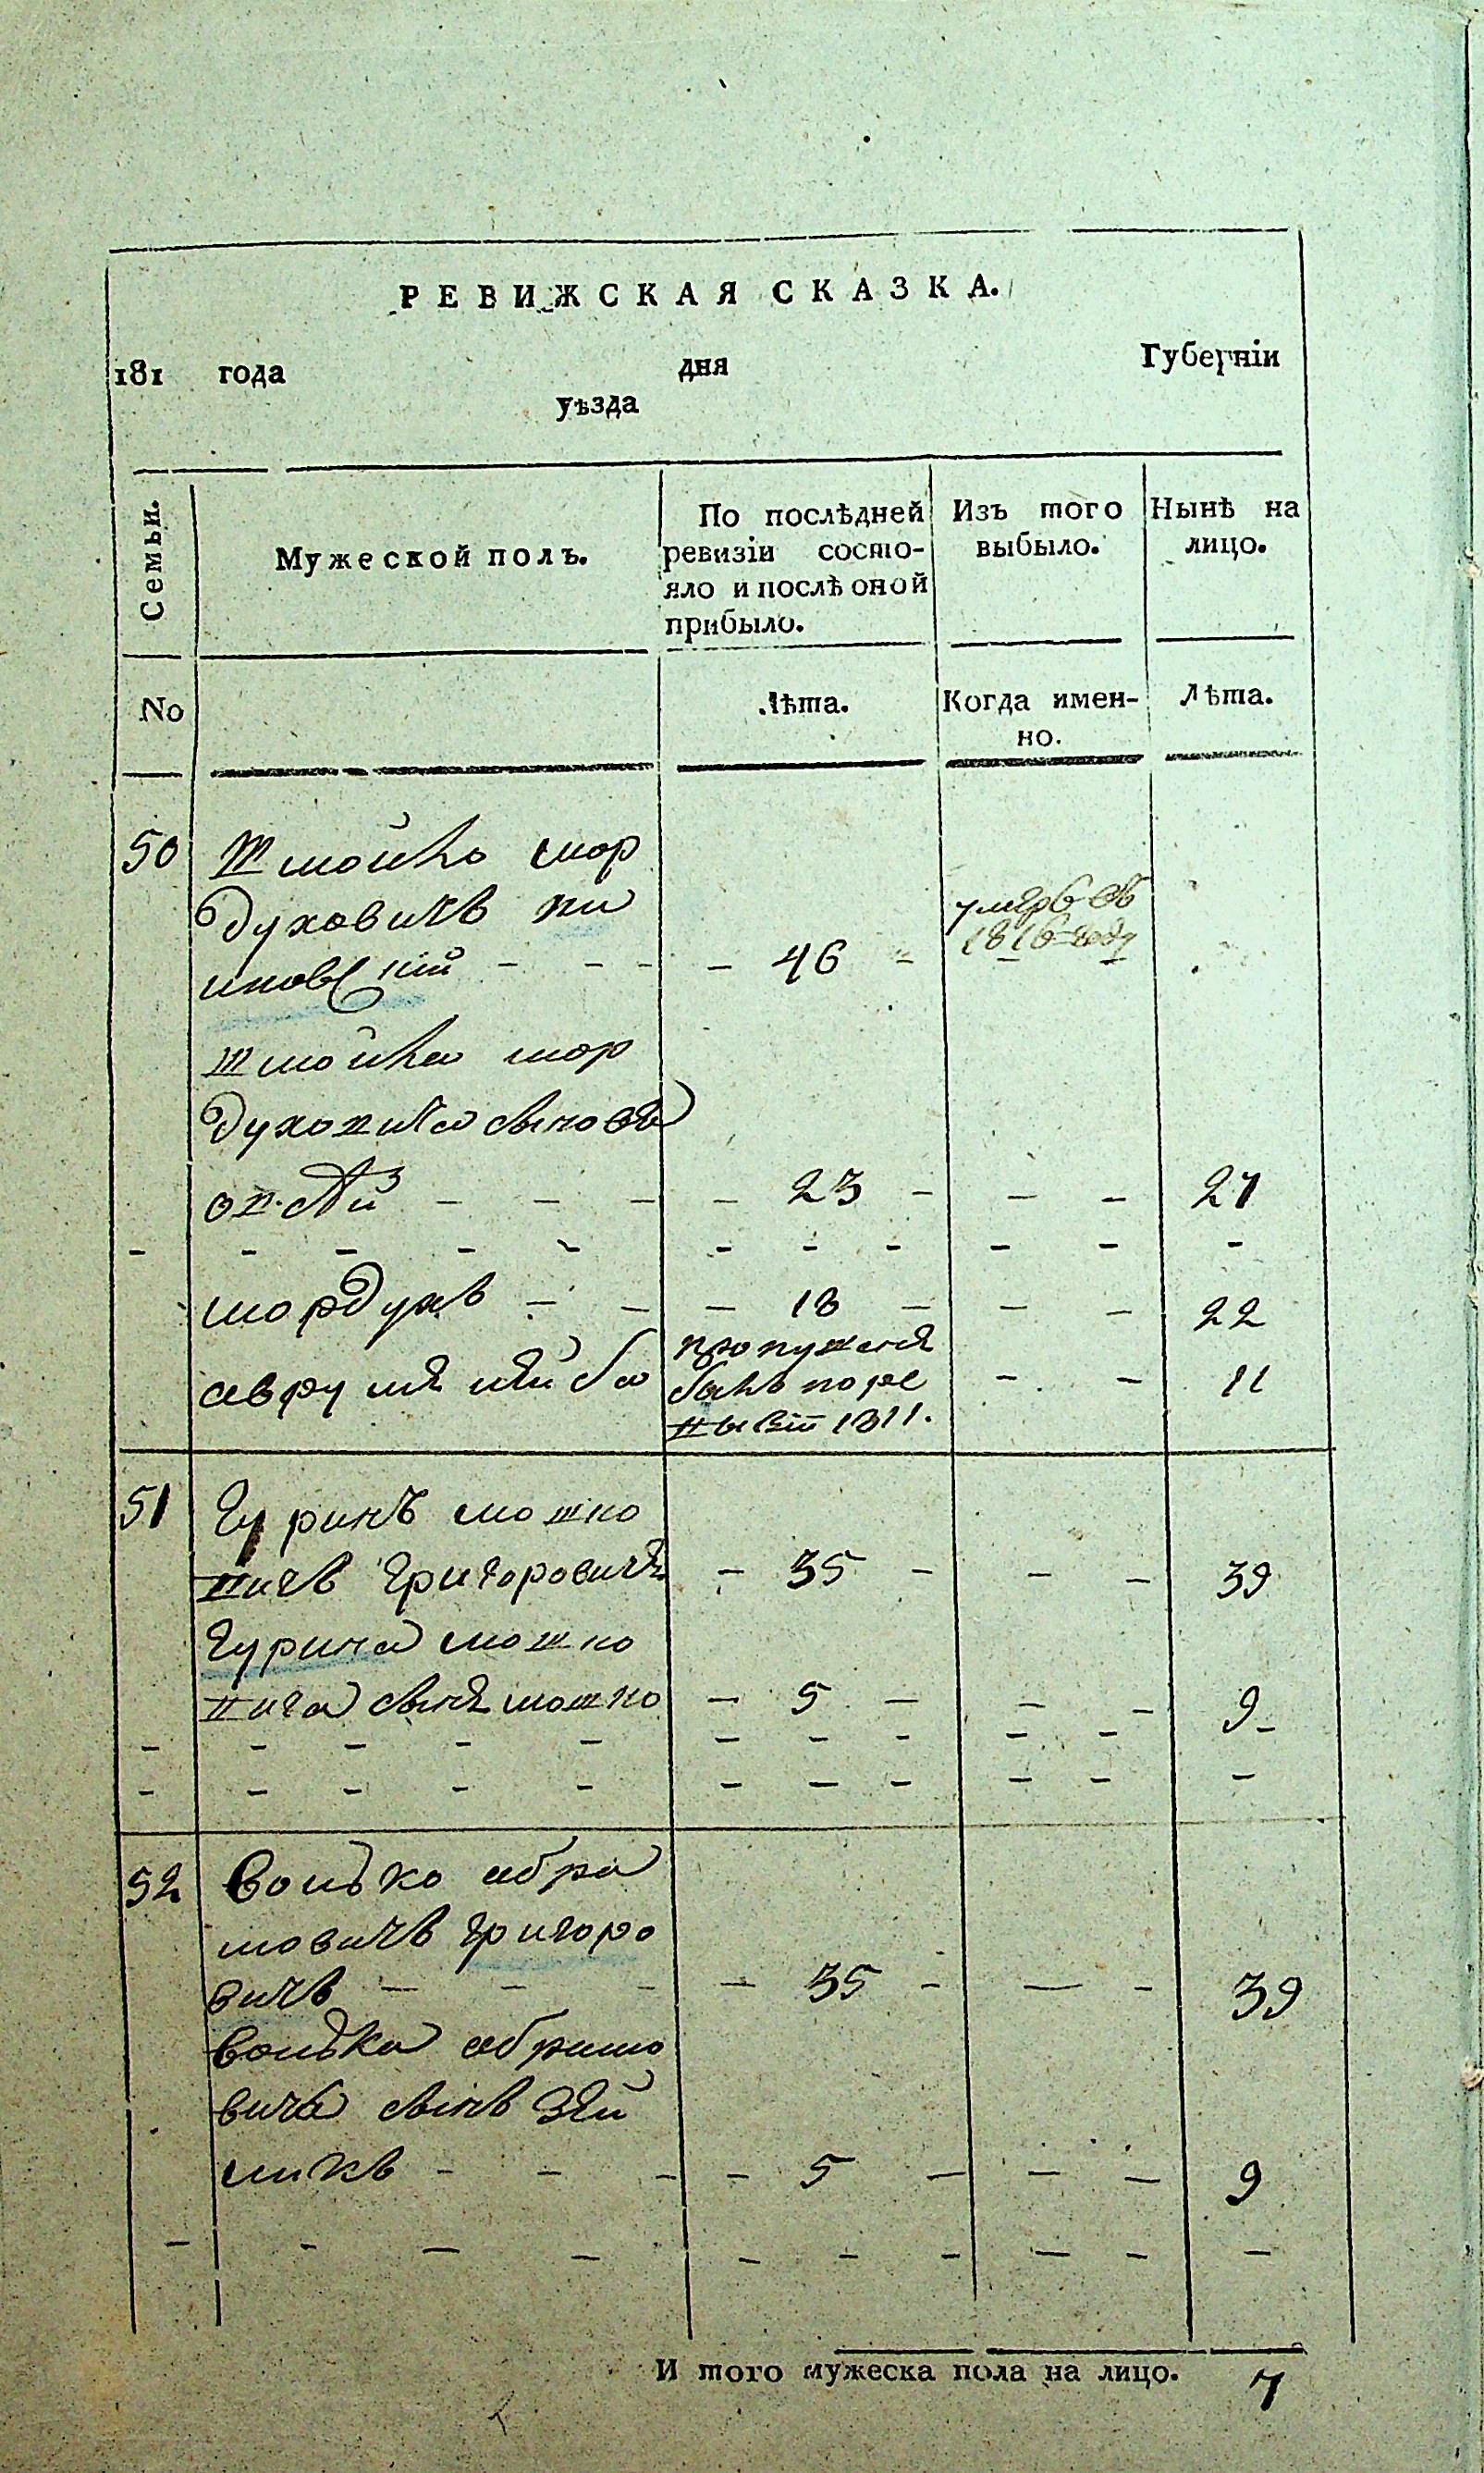 РЕВИЖСКАЯ СКАЗКА.
181 года дня Губерніи
уѣзда
Семьи.
Мужеской полъ.
По послѣдней ревизіи состояло и послѣ оной прибыло.
Изъ того выбыло.
Нынѣ на лицо.
No
Лѣта.
Когда именно.
Лѣта.
50 Шмойло мор
духовичъ
46
умеръ въ
1816 году
Шмойла мор
духовича сыновья
23 27
мордухъ 18 22
аврумъ лейба 11
пропущенъ
былъ по ре
визіи 1811.
51 Гуринъ мошко
вичъ Григоровичъ 35 39
Гурина мошко
вича сынъ мошко 5 9
52 абра
мовичъ Григоро
вичъ 35 39
абрамо
вича сынъ Зей
5 9
И того мужеска пола на лицо. 7